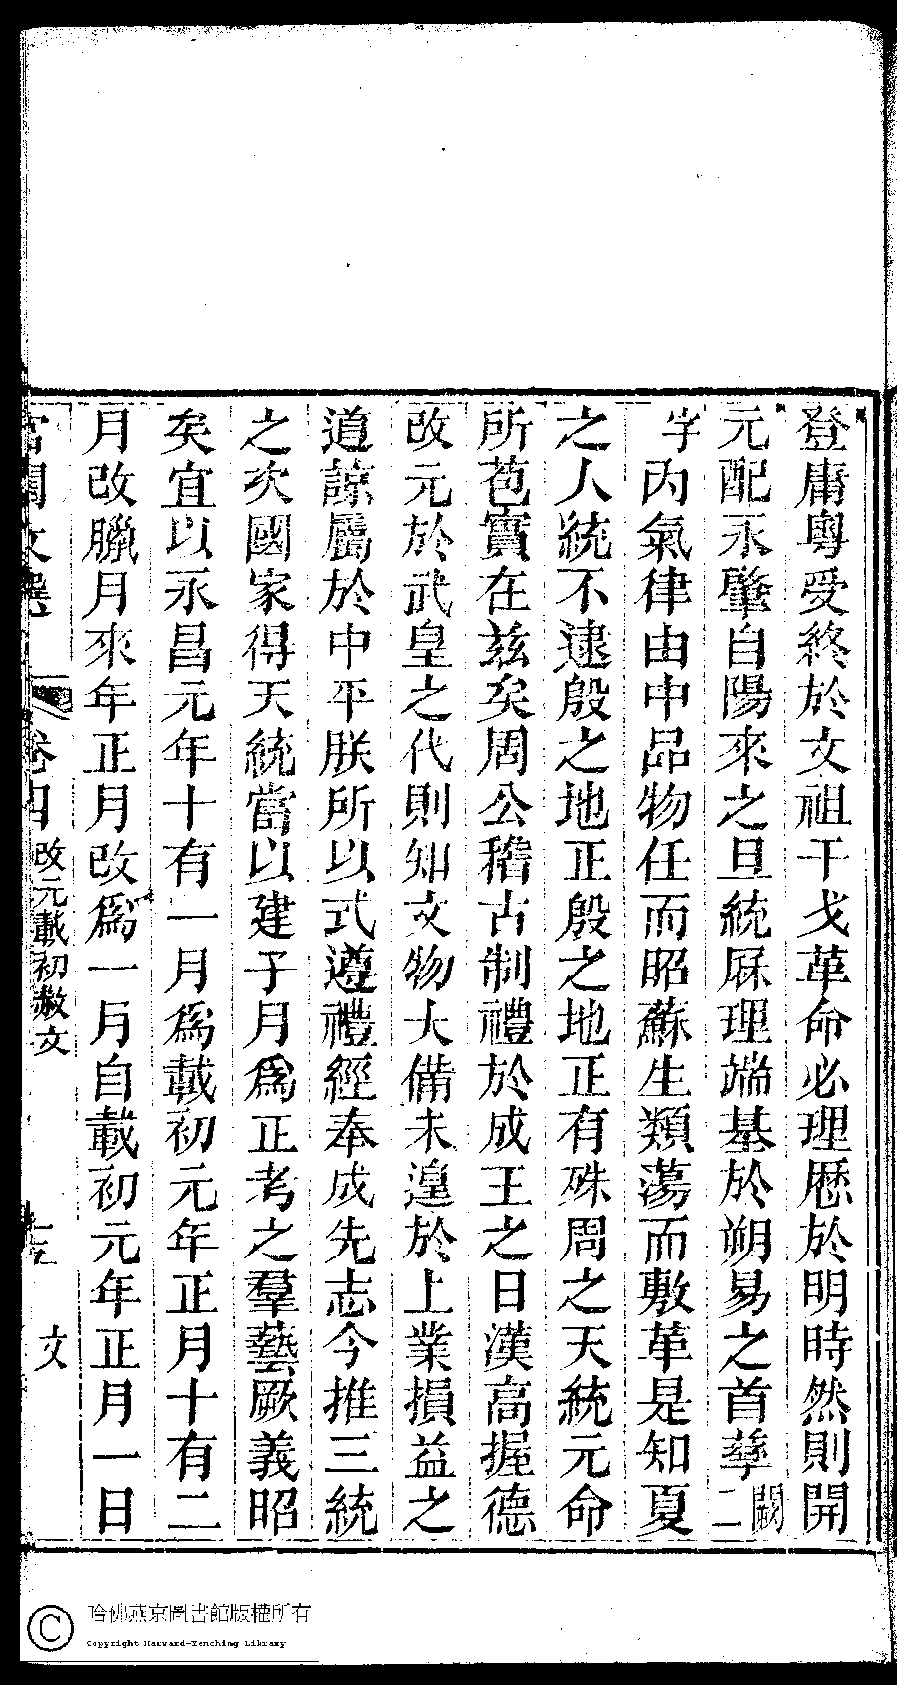 登庸粵受終於文祖干戈革命必理曆於明時然則開
元配永肇自陽來之旦統厤理端基於朔易之首孳闕二
字丙氣律由中品物任而昭蘇生類蕩而敷革是知夏
之人統不逮殷之地正殷之地正有殊周之天統元命
所苞實在茲矣周公稽古制禮於成王之日漢高握德
改元於武皇之代則知文物大備未遑於上業損益之
道諒屬於中平朕所以式遵禮經奉成先志今推三統
之次國家得天統當以建子月爲正考之羣藝厥義昭
矣宜以永昌元年十有一月爲載初元年正月十有二
月改臘月來年正月改爲一月自載初元年正月一日
宮閨文選 卷四 改元載初赦文 文
哈佛燕京圖書館版權所有
Copyright Harvard-Yenching Library